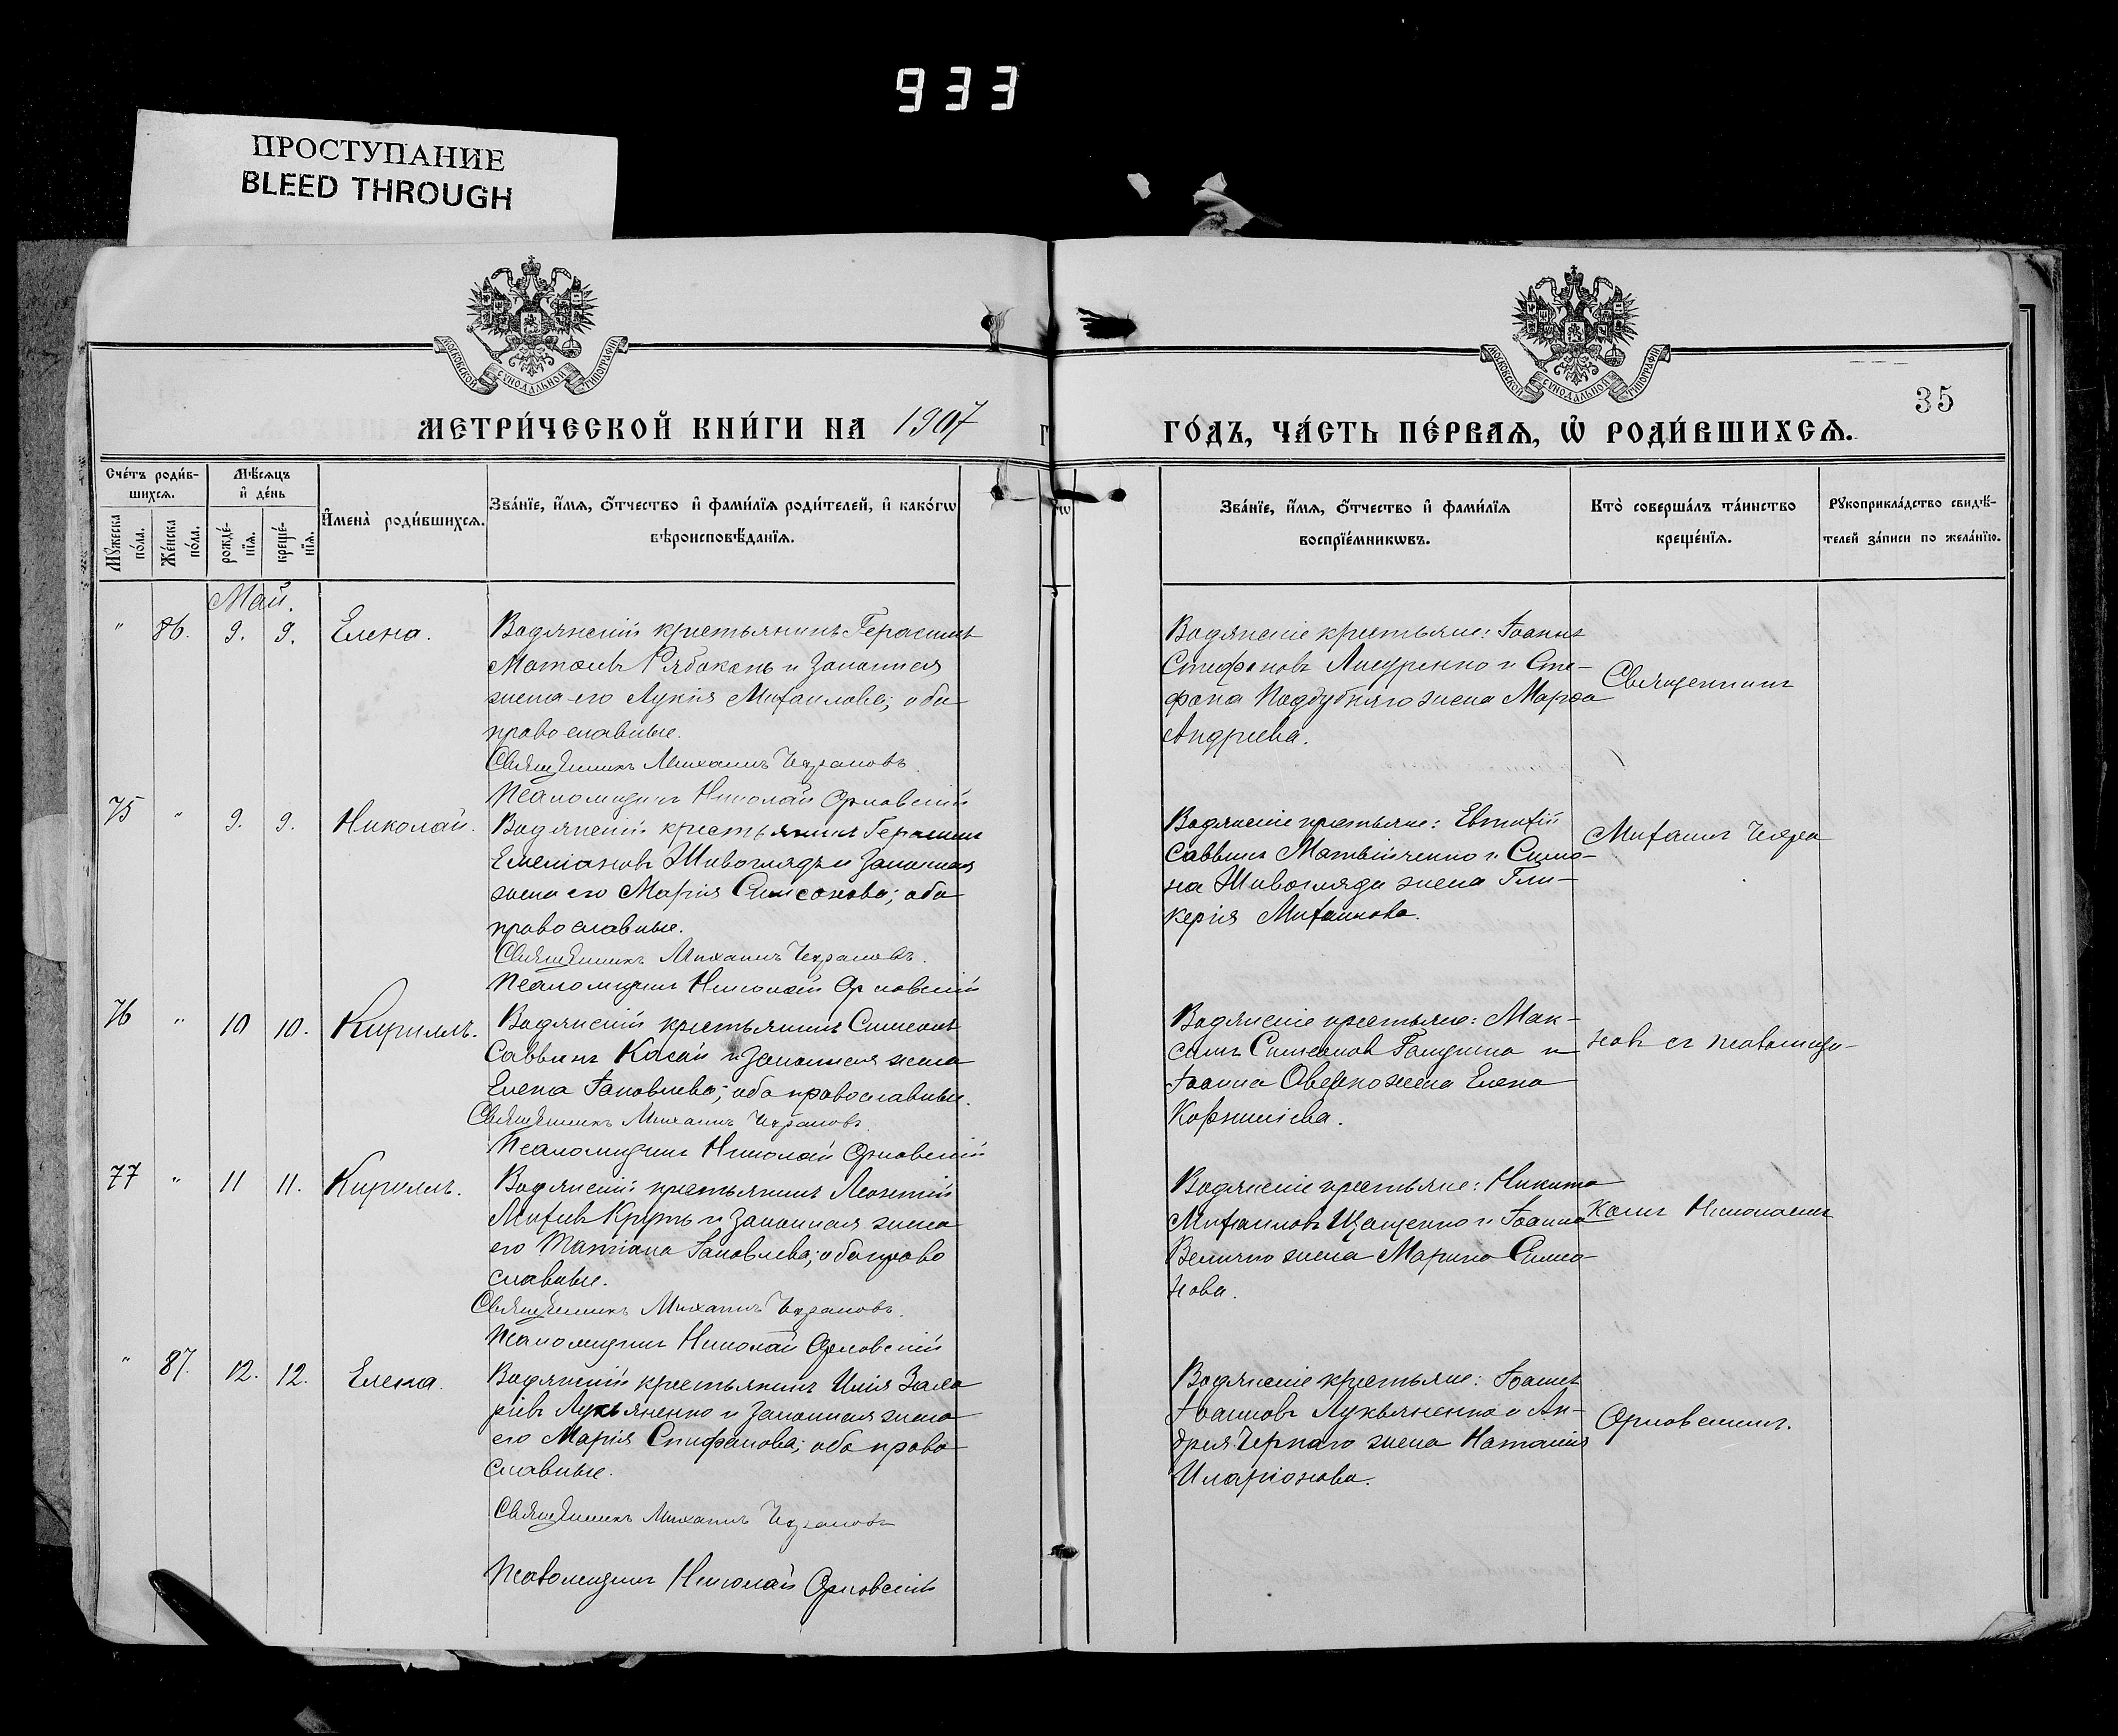 933
ПРОСТУПАНИЕ
BLEED THROUGH
МОСКОВСКОЙ СѴНОДАЛЬНОЙ ТИПОГРАФІИ
МОСКОВСКОЙ СѴНОДАЛЬНОЙ ТИПОГРАФІИ
35
МЕТРИ́ЧЕСКОЙ КНИ́ГИ НА 1907
ГО́ДЪ, ЧА́СТЬ ПЕ́РВАѦ, Ѽ РОДИ́ВШИХСѦ.
Сче́тъ роди́в-
шихсѧ.
Мꙋ́жеска по́ла.
Же́нска по́ла.
Мѣ́сѧцъ
и҆ де́нь
рожде́-
нїѧ.
креще́-
нїѧ.
И҆мена̀ роди́вшихсѧ.
Зва́нїе, и҆́мѧ, ѻ҆́тчество и҆ фами́лїѧ роди́телей, и҆ како́гѡ
вѣроисповѣ́данїѧ.
Зва́нїе, и҆́мѧ, ѻ҆́тчество и҆ фами́лїѧ
воспрїе́мникѡвъ.
Кто̀ соверша́лъ та́инство
креще́нїѧ.
Рꙋкоприкла́дство свидѣ́-
телей за́писи по жела́нїю.
Май.
" 86. 9. 9. Елена.
Водянскій крестьянинъ Герасимъ
Матѳеевъ Рябоконь и законная
жена его Лукія Михаилова; оба
православные.
Священникъ Михаилъ Чехрановъ
Псаломщикъ Николай Орловскій
Водянскіе крестьяне: Іоаннъ
Стефановъ Лисуренко и Сте-
фана Поддубняго жена Марѳа
Андреева.
Священникъ
75 " 9. 9. Николай.
Водянскій крестьянинъ Герасимъ
Емеліановъ Шивоглядъ и законная
жена его Марія Симеонова; оба
православные.
Священникъ Михаилъ Чехрановъ.
Псаломщикъ Николай Орловскій
Водянскіе крестьяне: Евтихій
Саввинъ Матвійченко и Симо-
на Шивогляда жена Гли-
керія Михаилова.
Михаилъ Чехра
76 " 10 10. Кириллъ.
Водянскій крестьянинъ Симеонъ
Саввинъ Косай и законная жена
Елена Іаковлева; оба православные.
Священникъ Михаилъ Чехрановъ.
Псаломщикъ Николай Орловскій
Водянскіе крестьяне: Мак-
симъ Симеонов и
Іоанна жена Елена
Корниліева.
новъ съ псаломщи-
77 " 11 11. Кириллъ.
Водянскій крестьянинъ Леонтій
Михеевъ и законная жена
его Татіана Іаковлева; оба право
славные.
Священникъ Михаилъ Чехрановъ.
Псаломщикъ Николай Орловскій
Водянскіе крестьяне: Никита
Михаиловъ Щащенко и Іоанна
Величко жена Марина Симео-
нова.
комъ Николаемъ
" 87. 12. 12. Елена.
Водянскій крестьянинъ Илія Заха
ріевъ Лукьяненко и законная жена
его Марія Стефанова; оба право
славные.
Священникъ Михаилъ Чехрановъ
Псаломщикъ Николай Орловскій
Водянскіе крестьяне: Іоаннъ
Іоанновъ Лукьяненко и Ан-
дрея Чернаго жена Наталія
Иларіонова.
Орловскимъ.